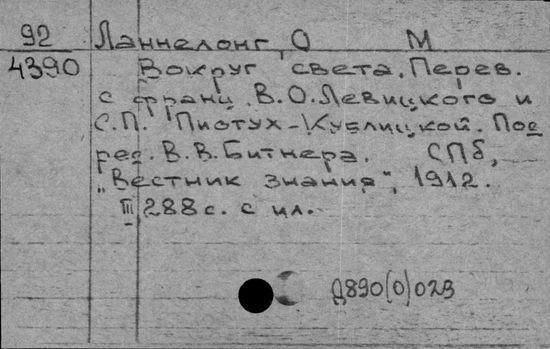 92 Ланнелонг, О М
4390 Вокруг света. Перев.
с франц. В.О.Левицкого и
С.П. Пиотух-Кублицкой. Под
ред. В.В.Битнера. СПб,
"Вестник знания", 1912.
III 288 с. с ил.
Д890(0)023